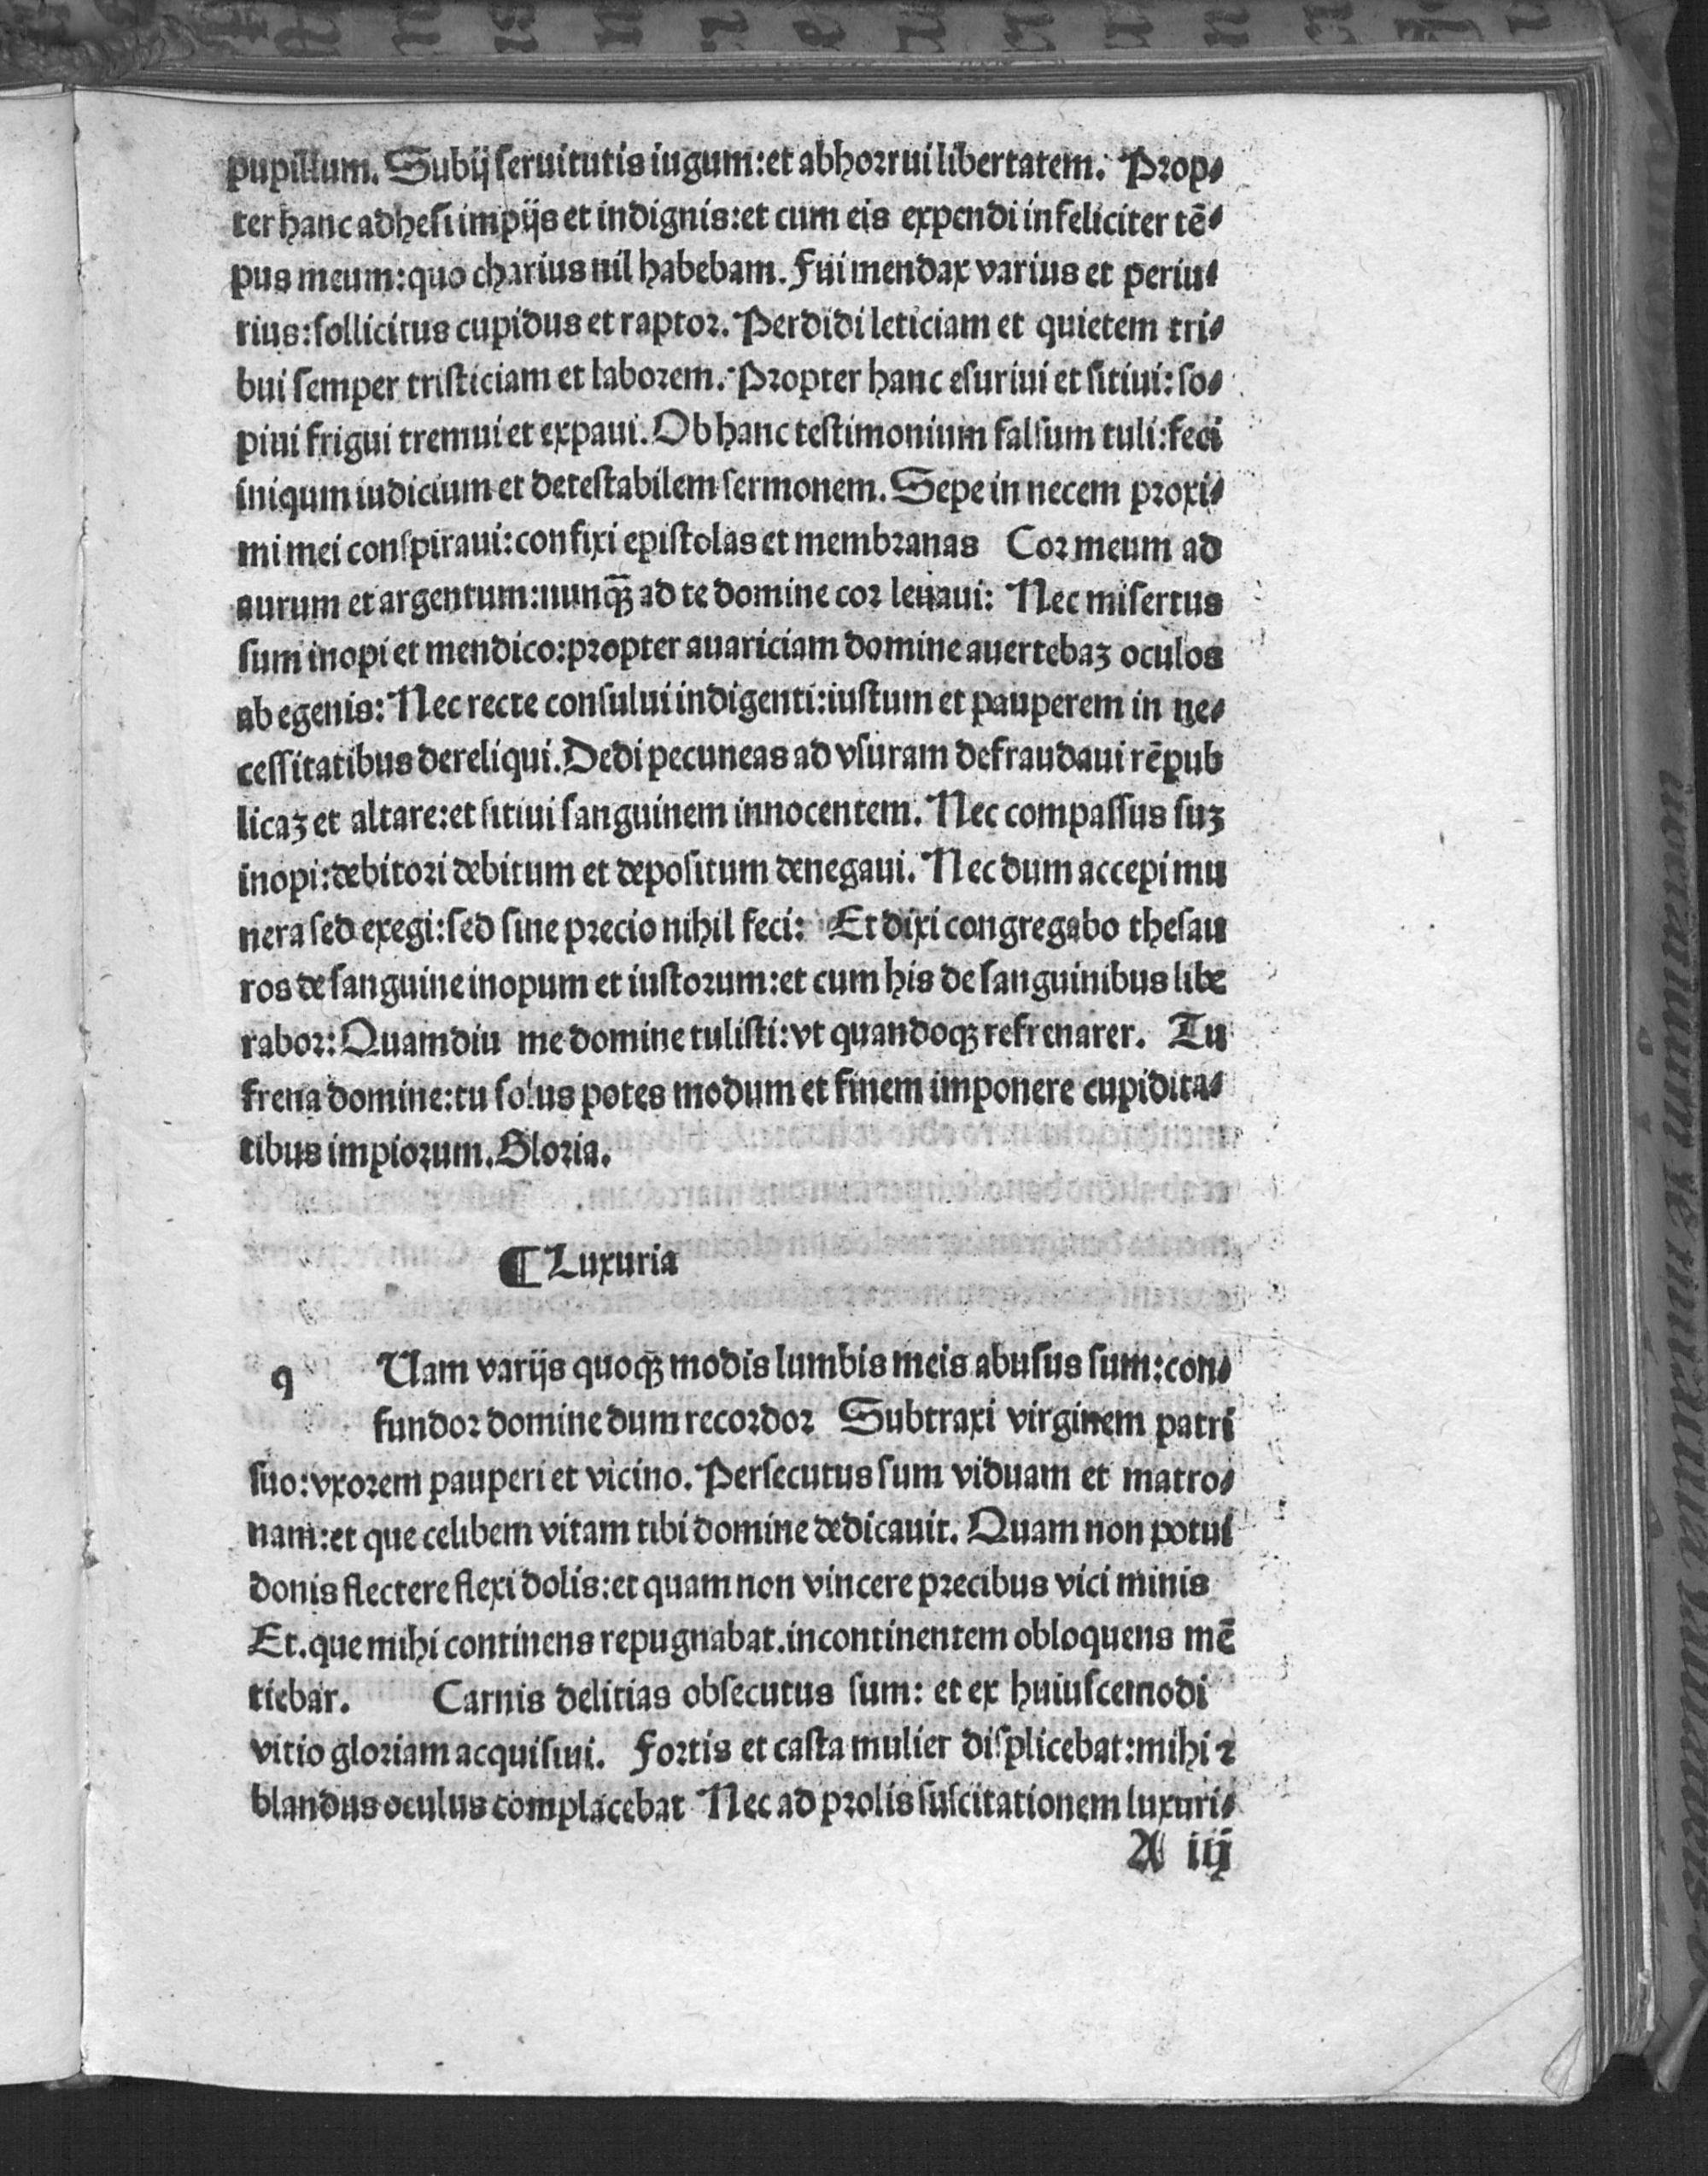 pupillum. Subij seruitutis iugum:et abhorrui libertatem. Prop⸗
ter hanc adhesi impijs et indignis:et cum eis expendi infeliciter tē⸗
pus meum:quo charius nil habebam. Fui mendax varius et periu⸗
rius:sollicitus cupidus et raptor. Perdidi leticiam et quietem tri⸗
bui semper tristiciam et laborem. Propter hanc esuriui et sitiui: so⸗
piui frigui tremui et expaui. Ob hanc testimonium falsum tuli:feci
iniqum iudicium et detestabilem sermonem. Sepe in necem proxi⸗
mi mei conspiraui:confixi epistolas et membranas Cor meum ad
aurum et argentum:nunq̄ꝫ ad te domine cor leuaui: Nec misertus
sum inopi et mendico:propter auariciam domine auertebaꝫ oculos
ab egenis: Nec recte consului indigenti:iustum et pauperem in ne⸗
cessitatibus dereliqui. Dedi pecuneas ad vsuram defraudaui rēpub
licaꝫ et altare:et sitiui sanguinem innocentem. Nec compassus suꝫ
inopi:debitori debitum et depositum denegaui. Nec dum accepi mu
nera sed exegi:sed sine precio nihil feci: Et dixi congregabo thesau
ros de sanguine inopum et iustorum:et cum his de sanguinibus libe
rabor: Quamdiu me domine tulisti:vt quandoqꝫ refrenarer. Tu
frena domine:tu solus potes modum et finem imponere cupidita⸗
tibus impiorum. Gloria.
¶ Luxuria
q Uam varijs quoqꝫ modis lumbis meis abusus sum:con⸗
fundor domine dum recordor Subtraxi virginem patri
suo:vxorem pauperi et vicino. Persecutus sum viduam et matro⸗
nam:et que celibem vitam tibi domine dedicauit. Quam non potui
donis flectere flexi dolis:et quam non vincere precibus vici minis
Et.que mihi continens repugnabat.incontinentem obloquens mē
tiebar. Carnis delitias obsecutus sum: et ex huiuscemodi
vitio gloriam acquisiui. Fortis et casta mulier displicebat:mihi ⁊
blandus oculus complacebat Nec ad prolis suscitationem luxuri⸗
A iij